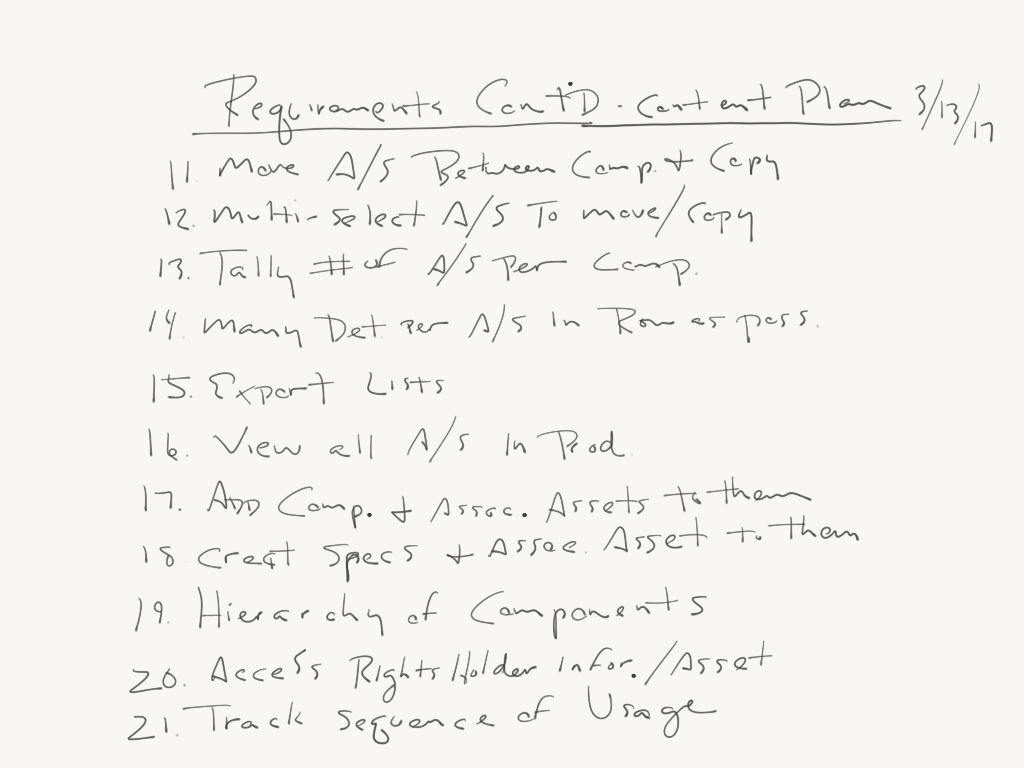 Requirements Cont'D - Content Plan 3/13/17
11. Move A/S Between Comp. + Copy
12. Multi-select A/S To move/copy
13. Tally # of A/S Per Comp.
14. Many Det per A/S In Row as poss.
15. Export Lists
16. View all A/S In Prod.
17. ADD Comp. + Assoc. Assets to them
18 Creat Specs + Assoc. Asset to them
19. Hierarchy of Components
20. Access RightsHolder Infor./Asset
21. Track Sequence of Usage